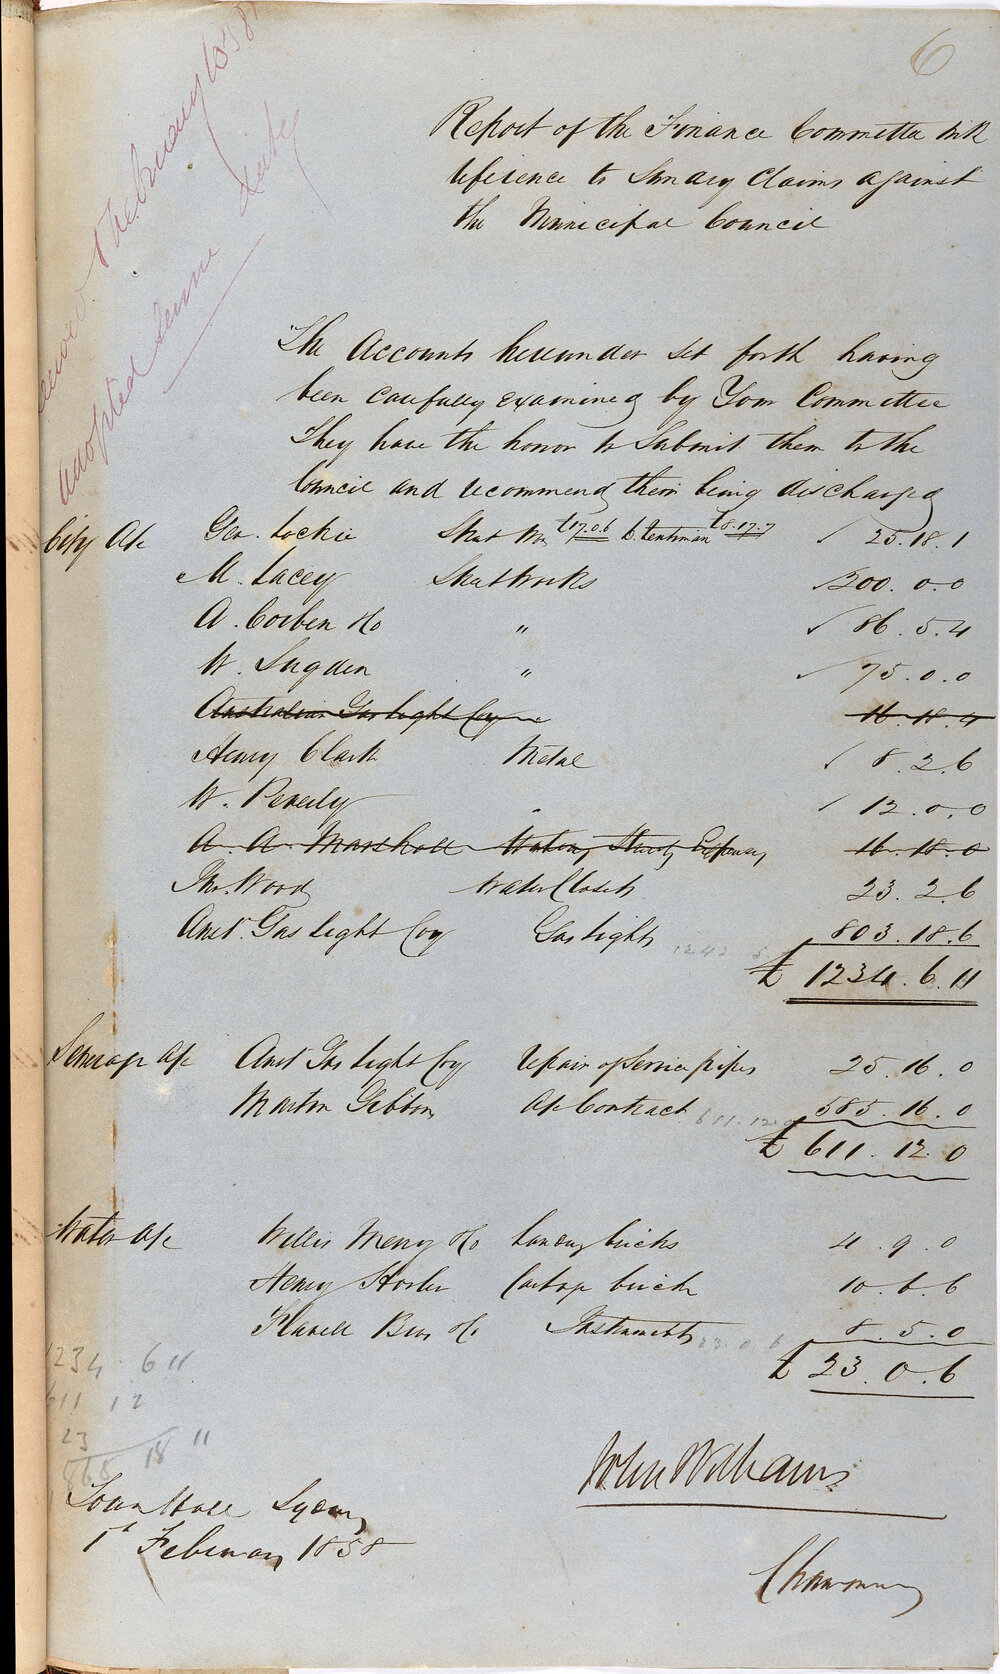 6
Report of the Finance Committee with
reference to Sundry Claims against
the Municipal Council
February 1858
adopted
The Accounts hereunder set forth having
been carefully examined by Your Committee
They have the honor to Submit them to the
Council and recommend them being discharged
City A/c Geo. Lockie Street Wks £17.0.6 £8.17.7 25.18.1
M. Lacey Street Works 200.0.0
A. Corben & Co " 86.5.4
W. Sugden " 75.0.0
Australian Gas Light Coy 16.18.4
Henry Clark Metal 8.2.6
W. Peverly " 12.0.0
A. A. Marshall Watering Streets Expenses 16.18.0
Thos. Wood Water Closets 23.2.6
Aust. Gas Light Coy Gas Lights 1242 803.18.6
£ 1234.6.11
Sewerage A/c Aust Gas Light Coy repair of Service pipes 25.16.0
Martin Gibbons A/c Contract 611.12.0 585.16.0
£ 611.12.0
Water A/c Willis Merry & Co bricks 4.9.0
Henry Cartage bricks 10.6.6
Flavell Bros & Co Instruments 23.0.6 8.5.0
£ 23.0.6
1234 6 11
611 12
23
1868 18 11
John Williams
Town Hall Sydney
1st February 1858
Chairman